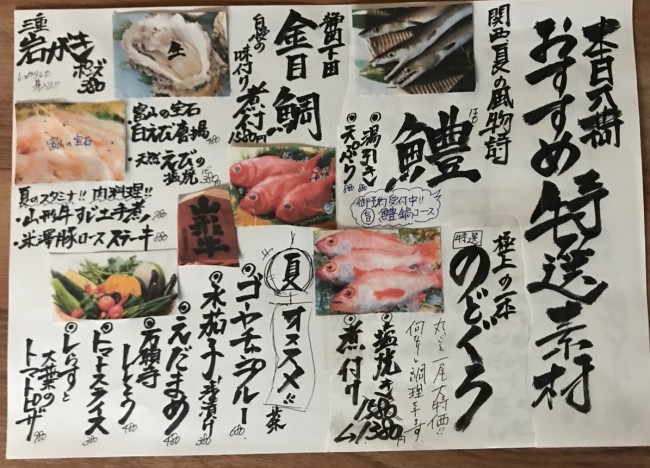 本日入荷
おすすめ特選素材
関西夏の風物詩
鱧
はも
湯引き 880
天ぷら 880
御予約受付中!!
鱧鍋コース
極上の一本
特選
のどぐろ
丸ごと一尾大特価!!
何なりと調理します
塩焼き 1580
煮付け 1580円
金目鯛
自慢の
味付け
煮付 1580円
三重
岩がき
ポン酢 380
生
富山の宝石
富山の宝石
白えび唐揚 780
天然えびの
塩焼
夏のスタミナ!! 肉料理!!
山形牛すじ土手煮 780
米澤豚ロースステーキ 880
山形牛
夏
オススメ
菜
ゴーヤチャンプルー 680
水茄子浅漬け 380
えだまめ 480
万願寺
ししとう 480
トマトスライス 380
しらすと
大葉の
トマトピザ 980